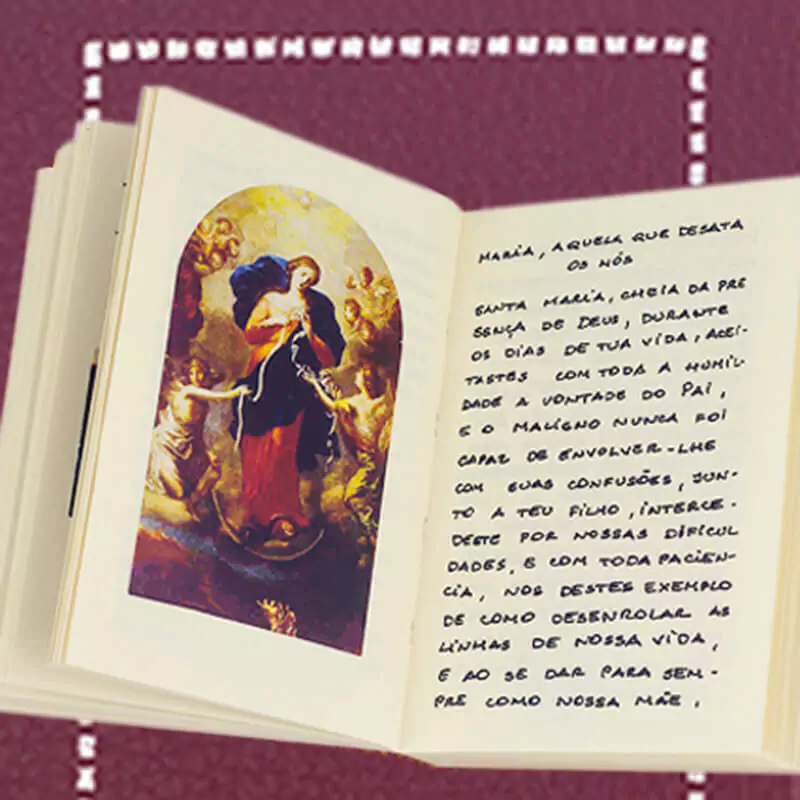 MARIA, AQUELA QUE DESATA
OS NÓS
SANTA MARIA, CHEIA DA PRE
SENÇA DE DEUS, DURANTE
OS DIAS DE TUA VIDA, ACEI-
TASTES COM TODA A HUMIL-
DADE A VONTADE DO PAI,
E O MALIGNO NUNCA FOI
CAPAZ DE ENVOLVER-LHE
COM SUAS CONFUSÕES, JUN-
TO A TEU FILHO, INTERCE-
DESTE POR NOSSAS DIFICUL
DADES, E COM TODA PACIEN-
CIA, NOS DESTES EXEMPLO
DE COMO DESENROLAR AS
LINHAS DE NOSSA VIDA,
E AO SE DAR PARA SEM-
PRE COMO NOSSA MÃE,